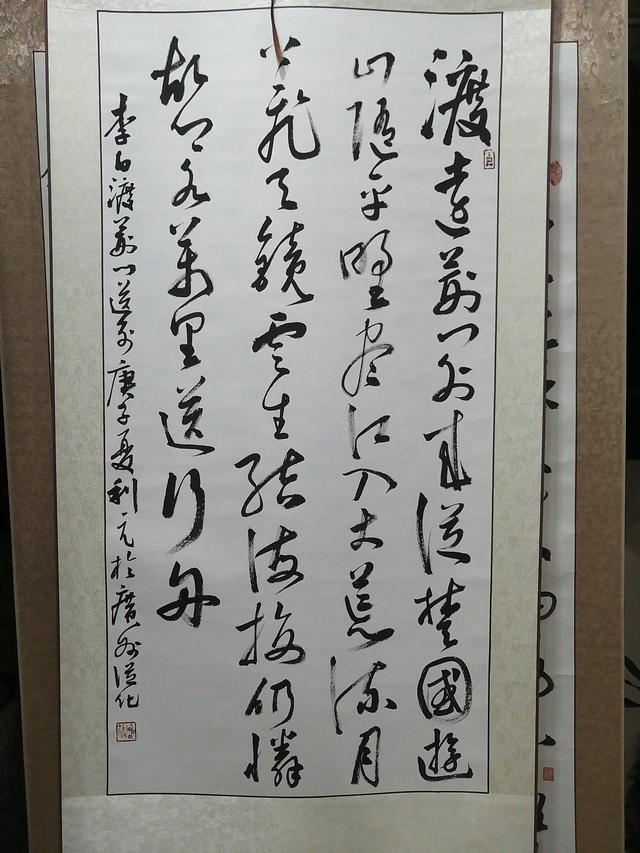 渡遠荊門外来從楚國遊
山隨平野盡江入大荒流月
下飛天鏡雲生結海楼仍憐
故鄉水萬里送行舟
李白渡荊門送別庚子夏利元於廣州從化